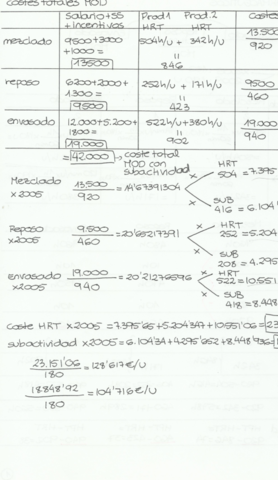 Costes totales MOD
Salario+SS + Incentivos Prod 1 HRT Prod. 2 HRT Costes
mezclado 9500+3000 +1000= 13500 504h/u + 342h/u = 846 13.500 920
reposo 6200+2000+ 1300= 9500 252h/u + 171h/u = 423 9500 460
envasado 12.000+5.200+ 1800= 19.000 522h/u+380h/u = 902 19.000 940
= 42000 → coste total MOD con subactividad
Mezclado x2005 13.500 / 920 = 14'67391304
HRT 504 = 7.395
SUB 416 = 6.104
Reposo x2005 9.500 / 460 = 20'65217391
HRT 252 = 5.204
SUB 208 = 4.295
Envasado x2005 19.000 / 940 = 20'21276596
HRT 522 = 10.551
SUB 418 = 8.448
Coste HRT x2005 = 7.395'65 + 5.204'347 + 10.551'06 = 23
subactividad x2005 = 6.104'34 + 4.295'652 + 8.448'936 =
23.151'06 / 180 = 128'617€/u
18848'92 / 180 = 104'716€/u